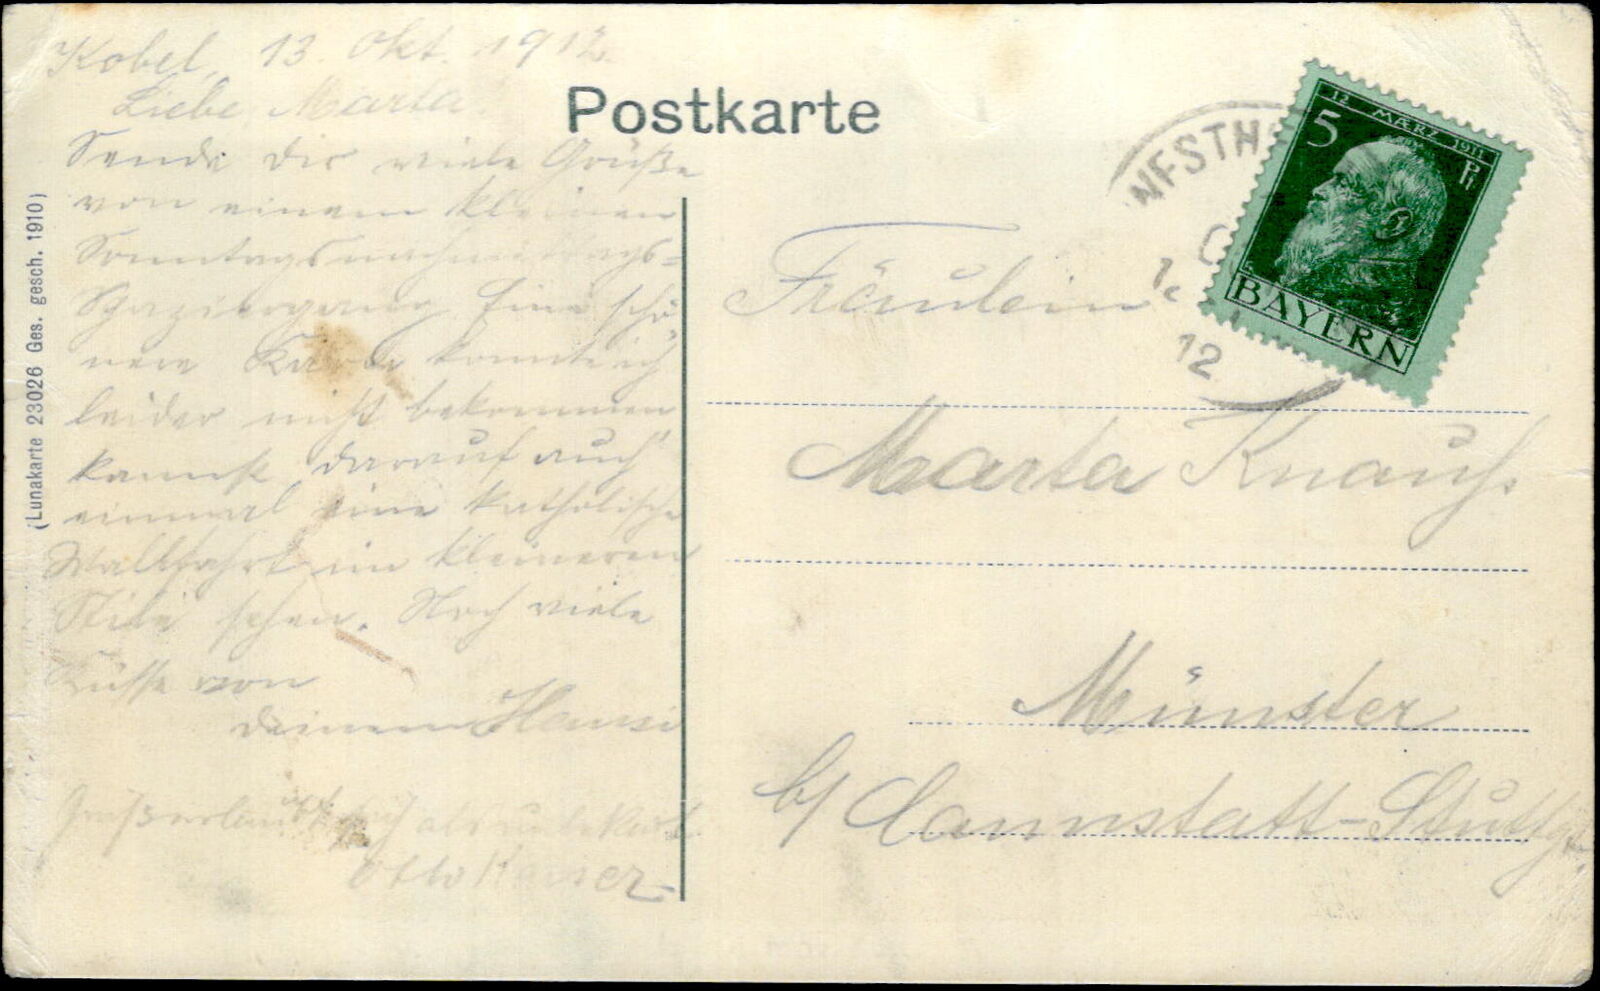 Kobel, 13. Okt. 1912.
Liebe Marta!
Sende dir viele Grüße
von einem kleinen
Sonntagsnachmittags-
Spaziergang. Eine schö-
nere Karte konnte ich
leider nicht bekommen
kannst darauf auch
einmal eine katholische
Wallfahrt im kleineren
Stile sehen. Noch viele
Küsse von
deinem Hansi
Otto Kaiser
(Lunakarte 23026 Ges. gesch. 1910)
Postkarte
WESTH
12
12. MÆRZ 1911
5 Pf
BAYERN
Fräulein
Marta Knauß.
Münster
b/ Cannstatt-Stuttg